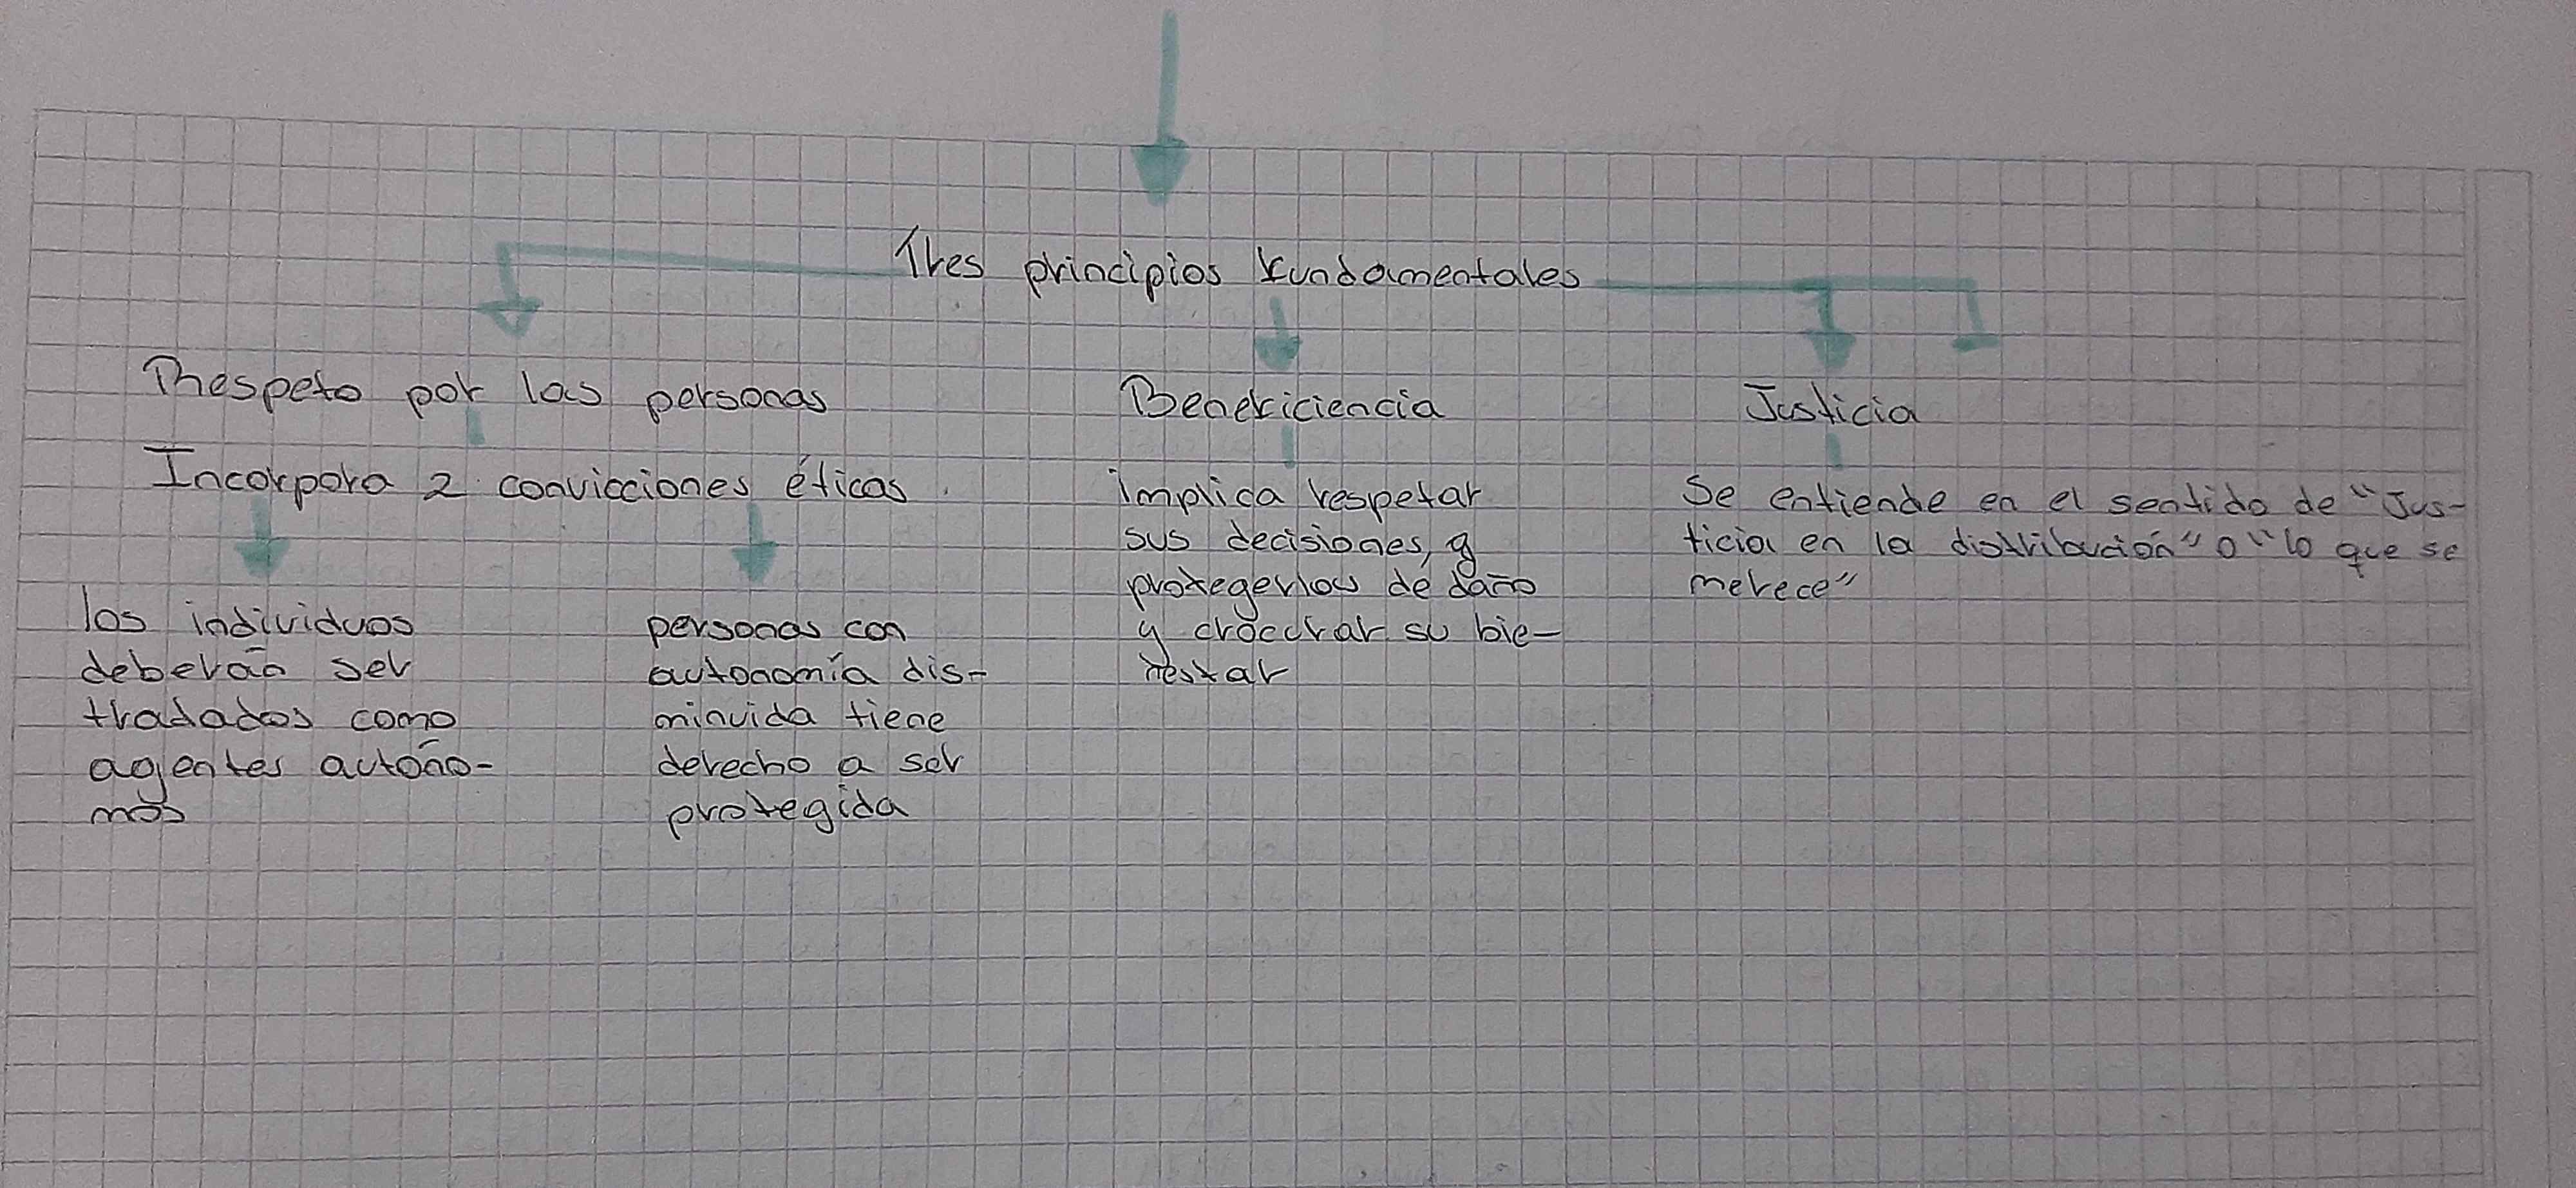 Tres principios fundamentales
Respeto por las personas
Incorpora 2 convicciones éticas
los individuos
deberán ser
tradados como
agentes autóno-
mos
personas con
autonomía dis-
minuida tiene
derecho a ser
protegida
Beneficiencia
implica respetar
sus decisiones, y
protegerlos de daño
y procurar su bie-
nestar
Justicia
Se entiende en el sentido de "Jus-
ticia en la distribución" o "lo que se
merece"